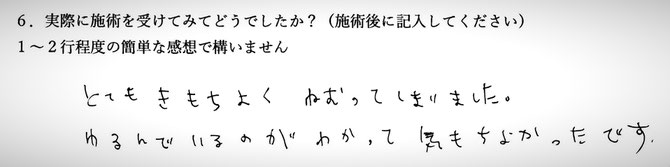 6．実際に施術を受けてみてどうでしたか？（施術後に記入してください）
1～2行程度の簡単な感想で構いません
とてもきもちよく ねむってしまいました。
ゆるんでいるのが わかって 気もちよかったです.